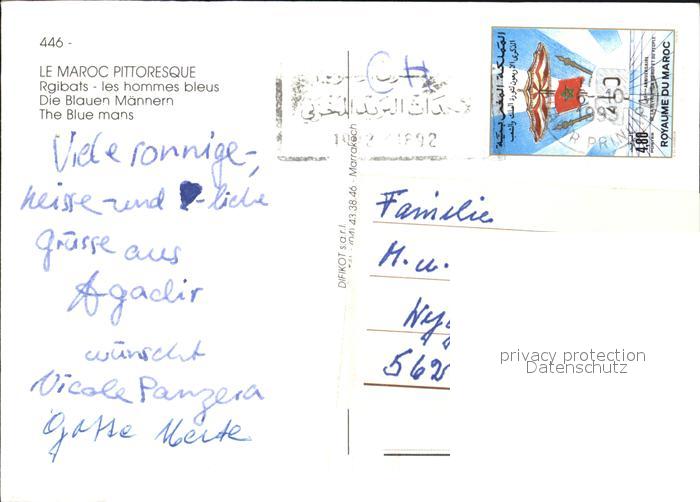 446 -
LE MAROC PITTORESQUE
Rgibats - les hommes bleus
Die Blauen Männern
The Blue mans
Viele sonnige-,
heisse- und ♥-liche
Grüsse aus
Agadir
wünscht
Nicole Panzera
CH
1892
DIFIKOT s.a.r.l.
43.38.46 - Marrakech
المملكة المغربية
ROYAUME DU MAROC
4,80
1993
Familie
M. u.
562
privacy protection
Datenschutz